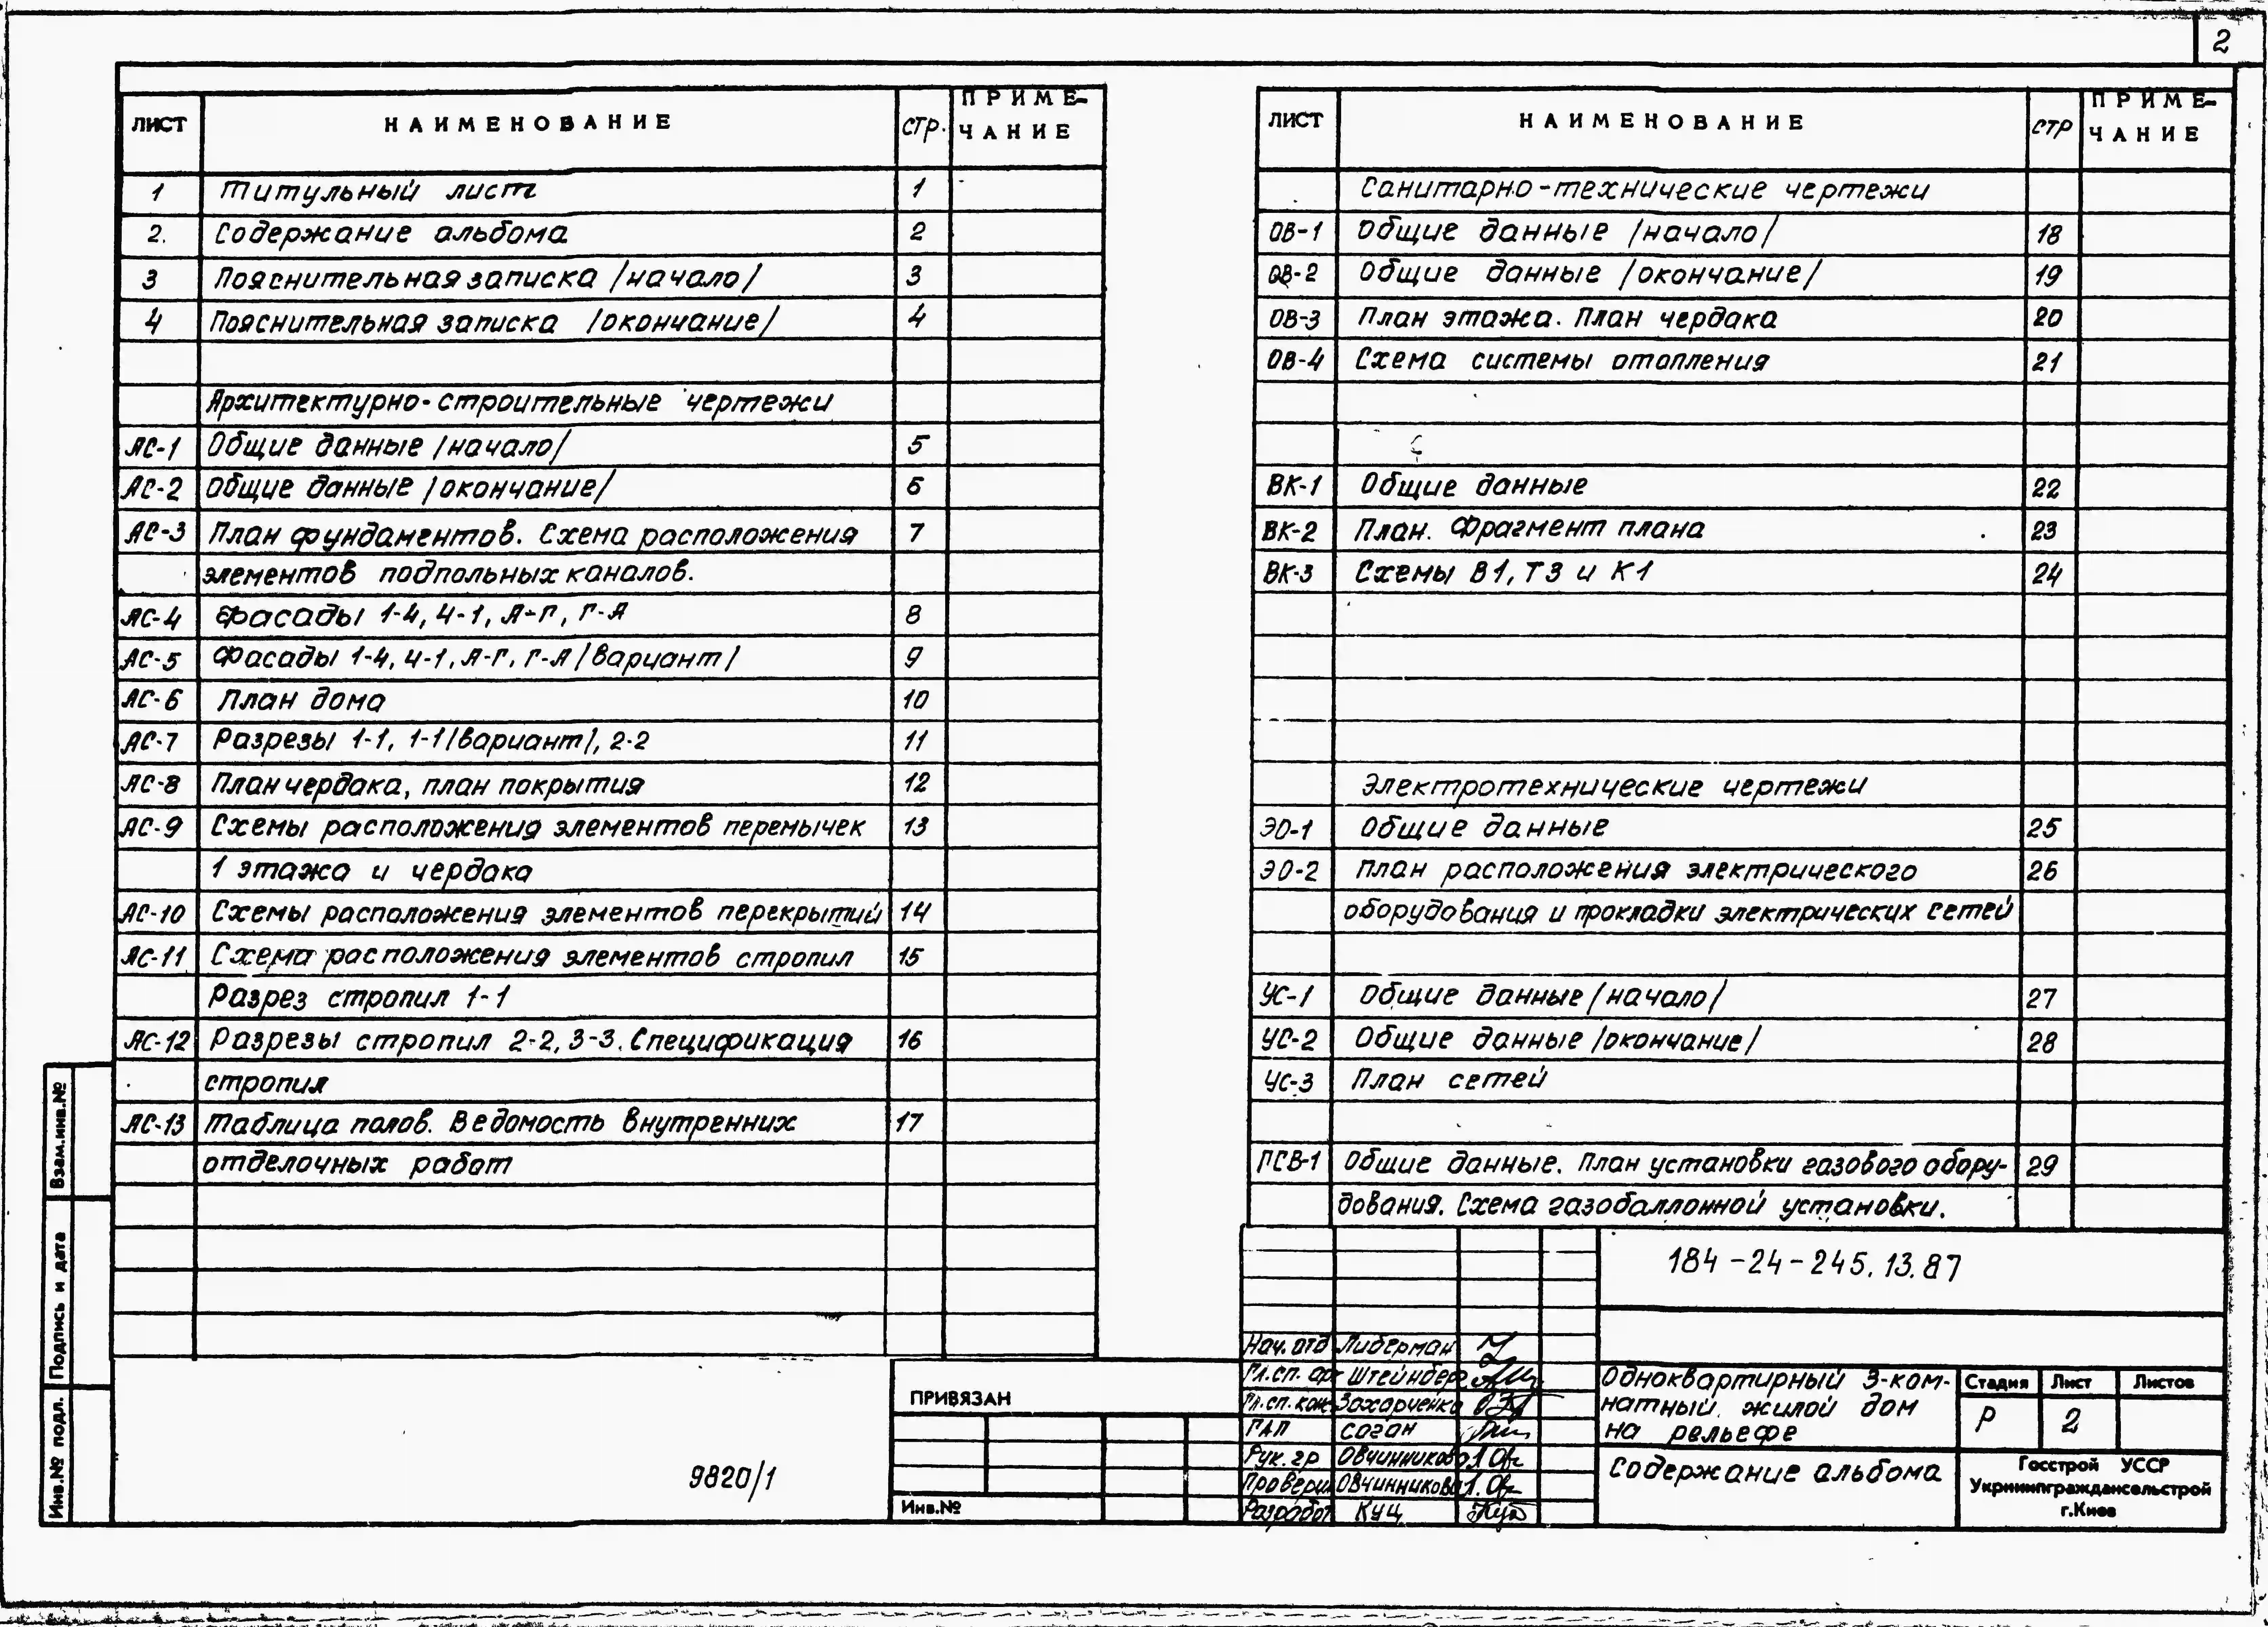 2
ЛИСТ НАИМЕНОВАНИЕ СТР. ПРИМЕ-
ЧАНИЕ
1 Титульный лист 1
2. Содержание альбома 2
3 Пояснительная записка /начало/ 3
4 Пояснительная записка /окончание/ 4
Архитектурно-строительные чертежи
АС-1 Общие данные /начало/ 5
АС-2 Общие данные /окончание/ 6
АС-3 План фундаментов. Схема расположения 7
элементов подпольных каналов.
АС-4 Фасады 1-4, 4-1, А-Г, Г-А 8
АС-5 Фасады 1-4, 4-1, А-Г, Г-А /вариант/ 9
АС-6 План дома 10
АС-7 Разрезы 1-1, 1-1 /вариант/, 2-2 11
АС-8 План чердака, план покрытия 12
АС-9 Схемы расположения элементов перемычек 13
1 этажа и чердака
АС-10 Схемы расположения элементов перекрытий 14
АС-11 Схема расположения элементов стропил 15
Разрез стропил 1-1
АС-12 Разрезы стропил 2-2, 3-3. Спецификация 16
стропил
АС-13 Таблица полов. Ведомость внутренних 17
отделочных работ
ЛИСТ НАИМЕНОВАНИЕ СТР ПРИМЕ-
ЧАНИЕ
Санитарно-технические чертежи
ОВ-1 Общие данные /начало/ 18
ОВ-2 Общие данные /окончание/ 19
ОВ-3 План этажа. План чердака 20
ОВ-4 Схема системы отопления 21
ВК-1 Общие данные 22
ВК-2 План. Фрагмент плана 23
ВК-3 Схемы В1, Т3 и К1 24
Электротехнические чертежи
ЭО-1 Общие данные 25
ЭО-2 План расположения электрического 26
оборудования и прокладки электрических сетей
УС-1 Общие данные /начало/ 27
УС-2 Общие данные /окончание/ 28
УС-3 План сетей
ГСВ-1 Общие данные. План установки газового обору- 29
дования. Схема газобаллонной установки.
Взам.инв.№
Подпись и дата
Инв.№ подл.
9820/1
ПРИВЯЗАН
Инв.№
184-24-245.13.87
Нач. отд Либерман
Гл.сп. ар Штейнберг
Гл.сп. кон Захарченко
ГАП Соган
Рук. гр Овчинникова
Проверил Овчинникова
Разработ Куц
Одноквартирный 3-ком-
натный жилой дом
на рельефе
Стадия Лист Листов
Р 2
Содержание альбома
Госстрой УССР
Укрниипграждансельстрой
г.Киев